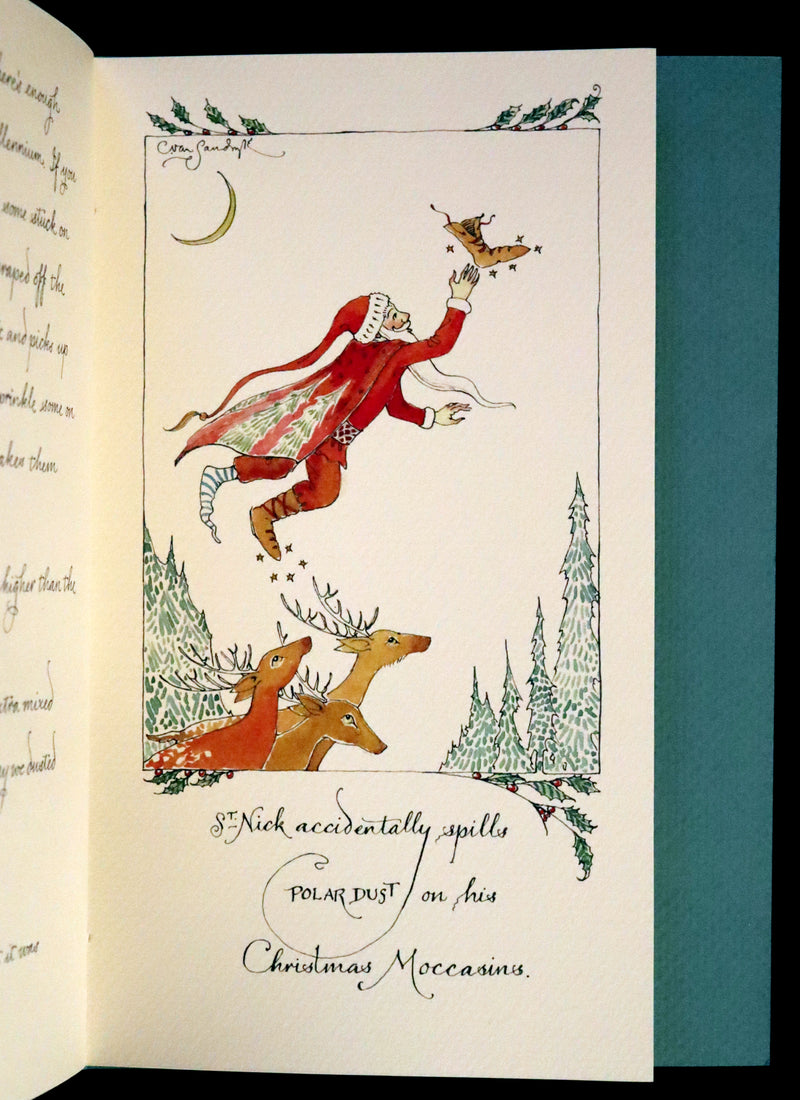 here's enough
llennium. If you
some stuck on
raped off the
t and picks up
prinkle some on
akes them
higher than the
xtra mixed
ey we dusted
it was
C van Sandwyk
St. Nick accidentally spills
POLAR DUST on his
Christmas Moccasins.